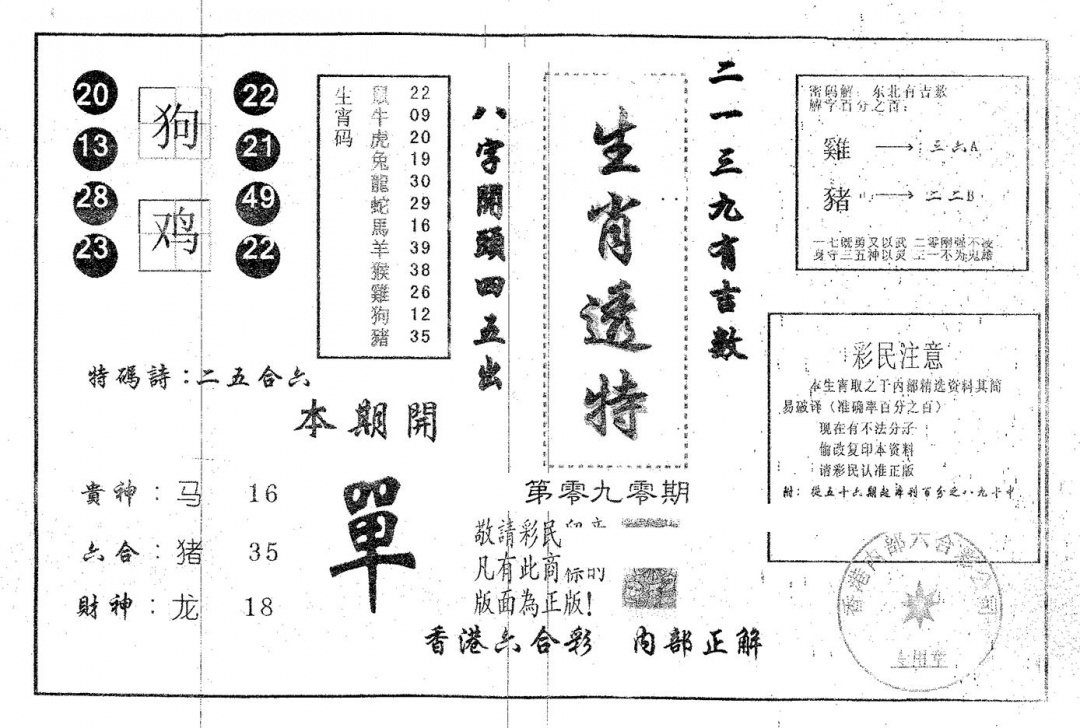 20
13
28
23
狗
鸡
22
21
49
22
生宵码
鼠 22
牛 09
虎 20
兔 19
龍 30
蛇 29
馬 16
羊 39
猴 38
雞 26
狗 12
豬 35
八字開頭四五出
生肖透特
二一三九有吉数
密码解：东北有吉数
解字百分之百：
雞 → 三六A
豬 → 二二B
一七既勇又以武 二零刚强不凌
身守三五神以灵 三一不为鬼雄
特碼詩：二五合六
本期開
單
貴神：马 16
六合：猪 35
財神：龙 18
第零九零期
敬請彩民
凡有此商标的
版面為正版！
香港六合彩 内部正解
彩民注意
本生宵取之于内部精选资料其简
易破译（准确率百分之百）
现在有不法分子
偷改复印本资料
请彩民认准正版
附：從五十六期起準到百分之八九十中
香港内部六合彩公司
专用章